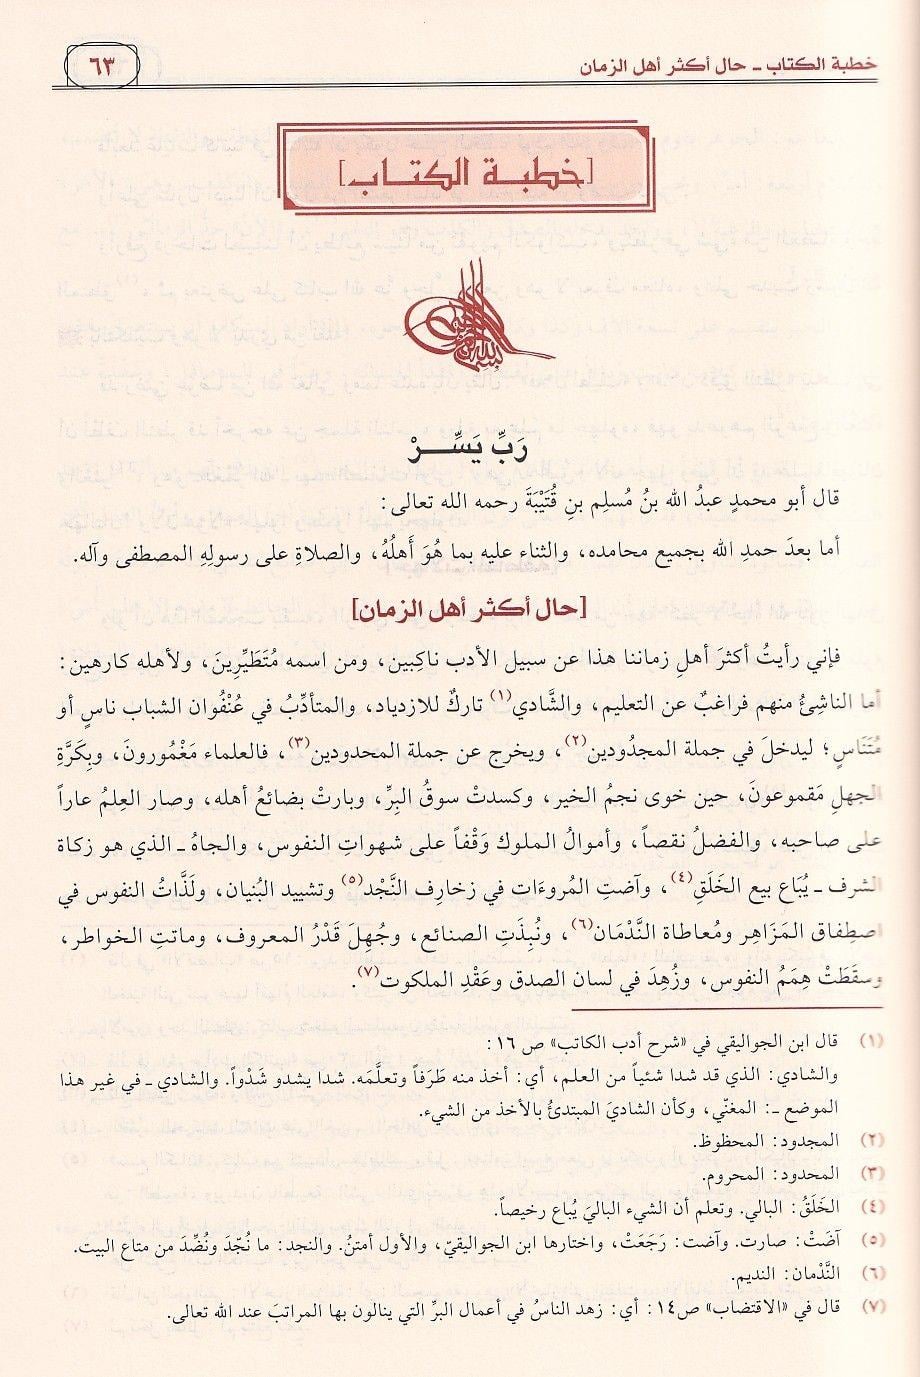 خطبة الكتاب ـ حال أكثر أهل الزمان
٦٣
[خطبة الكتاب]
رَبِّ يَسِّرْ
قال أبو محمدٍ عبدُ الله بنُ مُسلِم بنِ قُتَيْبَةَ رحمه الله تعالى:
أما بعدَ حمدِ الله بجميع محامده، والثناء عليه بما هُوَ أَهلُهُ، والصلاةِ على رسولِهِ المصطفى وآله.
[حال أكثر أهل الزمان]
فإني رأيتُ أكثرَ أهلِ زماننا هذا عن سبيل الأدب ناكِبين، ومن اسمه مُتَطَيِّرِينَ، ولأهله كارهين:
أما الناشِئُ منهم فراغبٌ عن التعليم، والشَّادي(١) تاركٌ للازدياد، والمتأدِّبُ في عُنْفُوان الشباب ناسٍ أو
مُتَنَاسٍ؛ ليدخلَ في جملة المجدُودين(٢)، ويخرج عن جملة المحدودين(٣)، فالعلماء مَغْمُورونَ، وبِكَرَّةِ
الجهلِ مَقموعونَ، حين خوى نجمُ الخير، وكسدتْ سوقُ البِرِّ، وبارتْ بضائعُ أهله، وصار العِلمُ عاراً
على صاحبه، والفضلُ نقصاً، وأموالُ الملوك وَقْفاً على شهواتِ النفوس، والجاهُ ـ الذي هو زكاة
الشرف ـ يُبَاع بيع الخَلَقِ(٤)، وآضتِ المُروءَات في زخارِف النَّجْد(٥) وتشييد البُنيان، ولَذَّاتُ النفوس في
اصطِفاق المَزَاهِر ومُعاطاة النَّدْمَان(٦)، ونُبِذَتِ الصنائع، وجُهلَ قَدْرُ المعروف، وماتتِ الخواطر،
وسقَطَتْ هِمَمُ النفوس، وزُهِدَ في لسان الصدق وعَقْدِ الملكوت(٧).
(١) قال ابن الجواليقي في «شرح أدب الكاتب» ص١٦:
والشادي: الذي قد شدا شئياً من العلم، أي: أخذ منه طَرَفاً وتعلَّمَه. شدا يشدو شَدْواً. والشادي ـ في غير هذا
الموضع ـ: المغنّي، وكأن الشاديَ المبتدئُ بالأخذ من الشيء.
(٢) المجدود: المحظوظ.
(٣) المحدود: المحروم.
(٤) الخَلَقُ: البالي. وتعلم أن الشيء الباليَ يُباع رخيصاً.
(٥) آضَتْ: صارت. وآضت: رَجَعَتْ، واختارها ابن الجواليقيّ، والأول أمتنُ. والنجد: ما نُجّدَ ونُضِّدَ من متاع البيت.
(٦) النَّدْمان: النديم.
(٧) قال في «الاقتضاب» ص١٤: أي: زهد الناسُ في أعمال البرِّ التي ينالون بها المراتبَ عند الله تعالى.